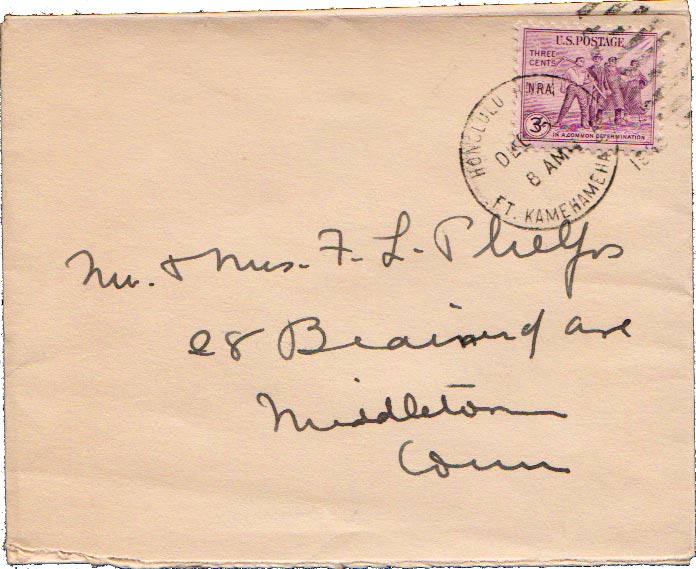 U.S. POSTAGE
THREE
CENTS
N.R.A.
3¢
IN A COMMON DETERMINATION
HONOLULU
DEC
8 AM
FT. KAMEHAMEHA
Mr. & Mrs. F. L. Phelps
28 Brainerd ave
Middletown
Conn